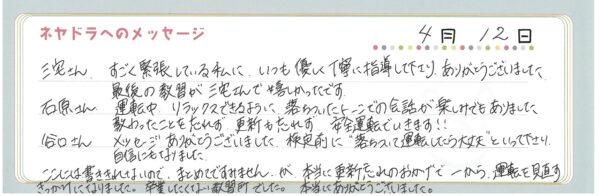 ネヤドラへのメッセージ
4月 12日
三宅さん すごく緊張している私に、いつも優しく丁寧に指導して下さり、ありがとうございました。
最後の教習が三宅さんで嬉しかったです。
石原さん 運転中 リラックスできるように、落ちついたトーンでの会話が楽しみでもありました。
教わったことを忘れず 更新も忘れず 安全運転でいきます!!
谷口さん メッセージありがとうございました。検定前に"落ちついて運転したら大丈夫"といって下さり、
自信にもなりました。
ここには書ききれないので、まとめてですみません。が、本当に更新忘れのおかげで一から、運転を見直す
きっかけになりました。卒業したくない教習所でした。本当にありがとうございました。